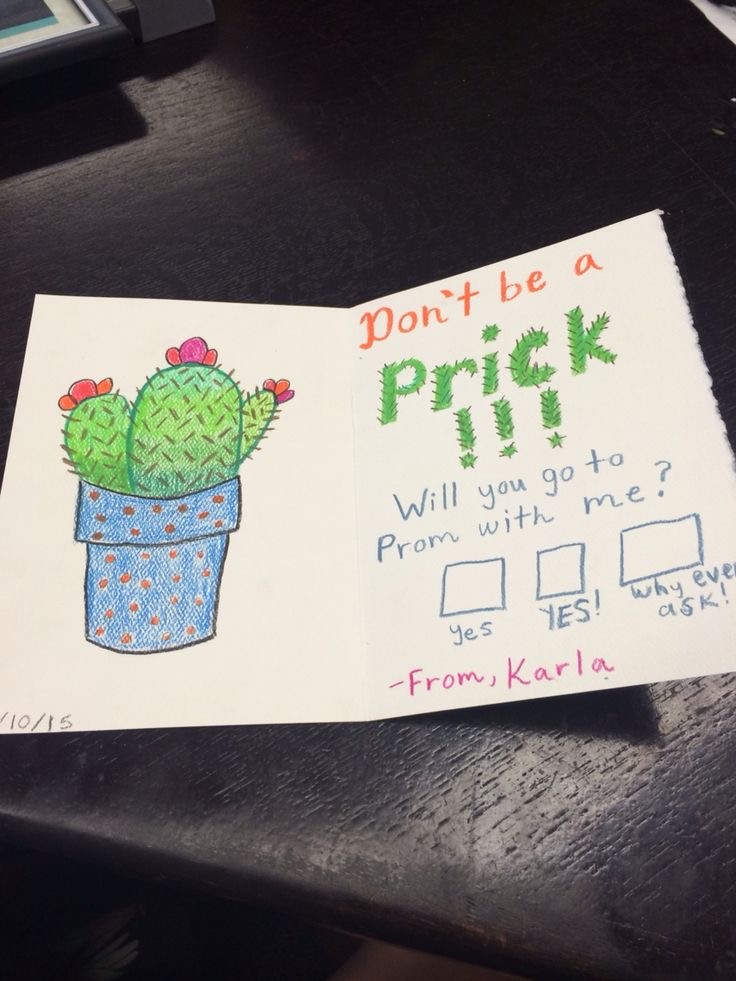 Don't be a
Prick
!!!
Will you go to
Prom with me?
yes
YES!
Why even
ask!
-From, Karla
/10/15